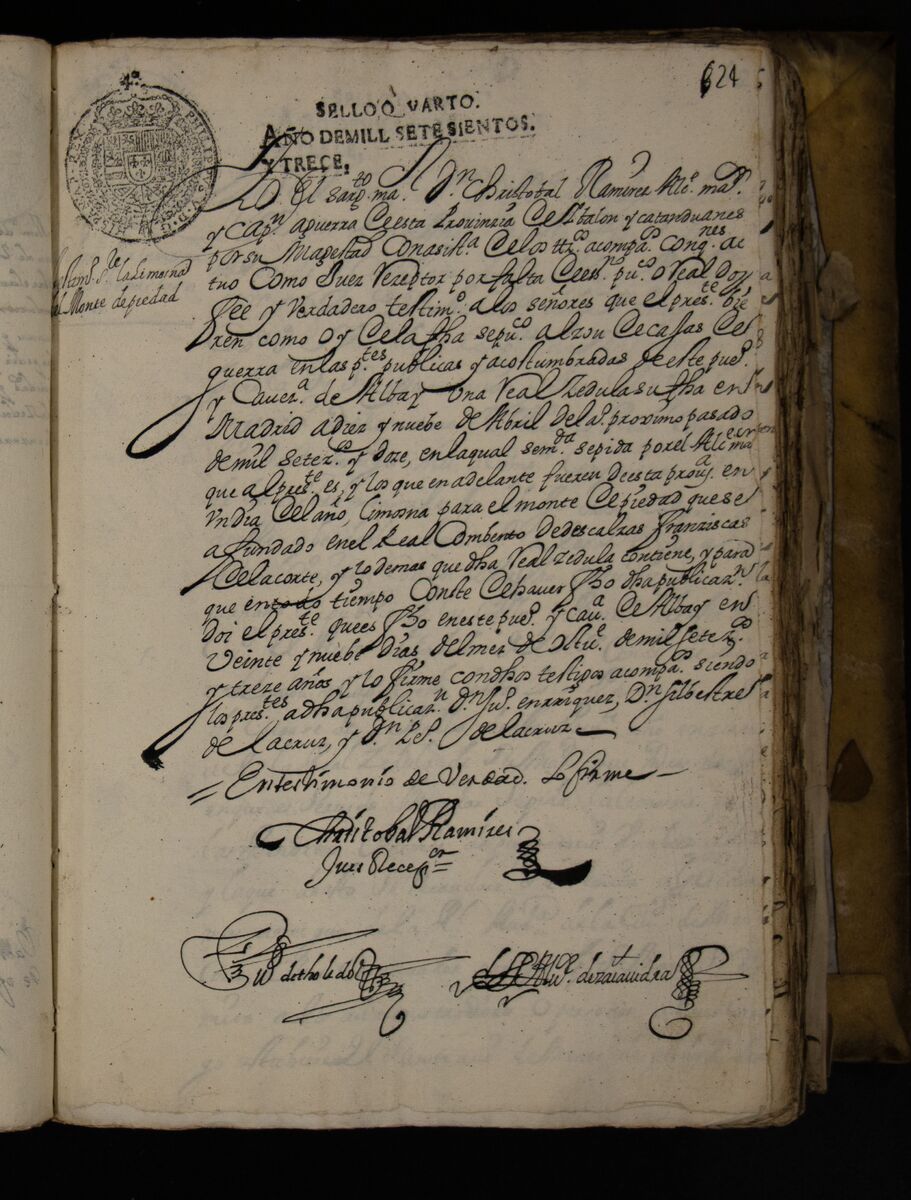 624
4ª
SELLO QVARTO.
AÑO DE MILL SETESIENTOS.
Y TRECE.
El sargto. ma. Dn Christobal Ramirez Alce. mar.
y capn. a guerra de esta Provinzia de Albay y catanduanes
por su Magestad con asista. de los tos. acompdos. conqnes. ac
tuo como Juez Rezeptor por falta de essno. puco. o Real doy
fee y verdadero testimo. a los señores que el preste. vie
ren como oy de la fha se puco. a l zon de caxas de
guerra en las ptes. publicas y acostumbradas de este pueo.
y Cavera. de Albay Una Real Zedula su fha en
Madrid a diez y nuebe de Abril del ao. proximo pasado
de mil setezos. y doze, en la qual se mda. se pida por el Alce mar
que al preste. es, y los que en adelante fueren de esta prova. en
Un dia del año, limosna para el monte de piedad que se
a fundado en el Real Combento de descalzas franziscas
de la corte, y lo demas que dha Real zedula contiene, y para
que en todo tiempo Conste de haver fho dha publicazn.
doi el preste. que es fho en este pueo. y cava. de Albay en
veinte y nuebe dias del mes de Octue. de mil setezos.
y treze años y lo firme con dhos testigos acompdos. siendo
los prestes. a dha publicazn. Dn Juo. enrriquez, Dn silbestre
de la cruz, y Dn de la cruz
= En testimonio de Verdad. Lo firme
Christobal Ramirez
Juez Recepor =
Juo de tholedo
de zaiauidra
la Limosna
del Monte de piedad